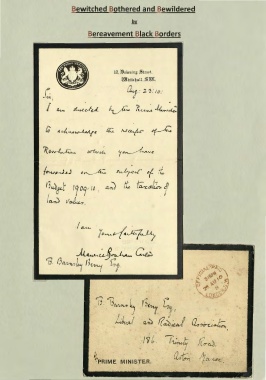 Bewitched Bothered and Bewildered
by
Bereavement Black Borders
10, Downing Street,
Whitehall, S.W.
Aug. 23. 10
Sir,
I am directed by the Prime Minister
to acknowledge the receipt of the
Resolution which you have
forwarded on the subject of the
Budget 1909-10, and the taxation of
land values.
I am
Yours faithfully
Maurice Bonham Carter
B. Barnsley Berry Esq.
B. Barnsley Berry Esq.
Liberal and Radical Association,
186 Trinity Road
Aston Manor
PRIME MINISTER.